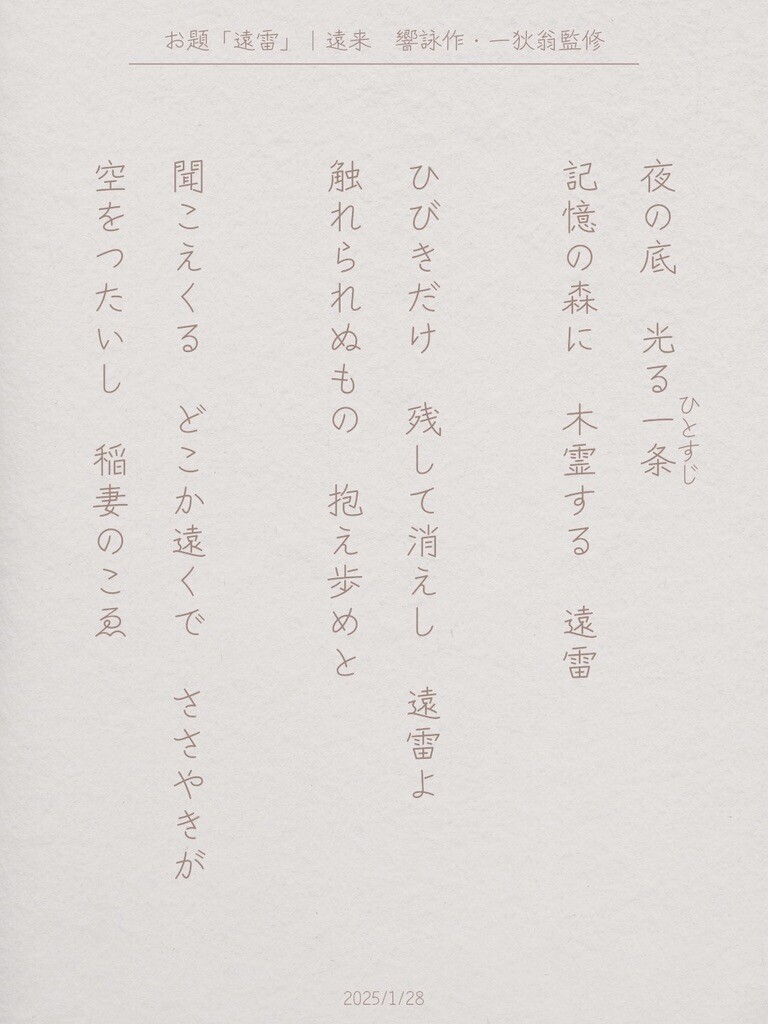 お題「遠雷」｜遠来　響詠作・一狄翁監修
夜の底　光る一条
ひとすじ
記憶の森に　木霊する　遠雷
ひびきだけ　残して消えし　遠雷よ
触れられぬもの　抱え歩めと
聞こえくる　どこか遠くで　ささやきが
空をつたいし　稲妻のこゑ
2025/1/28